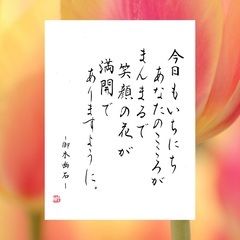 今日もいちにち
あなたのこころが
まんまるで
笑顔の花が
満開で
ありますように。